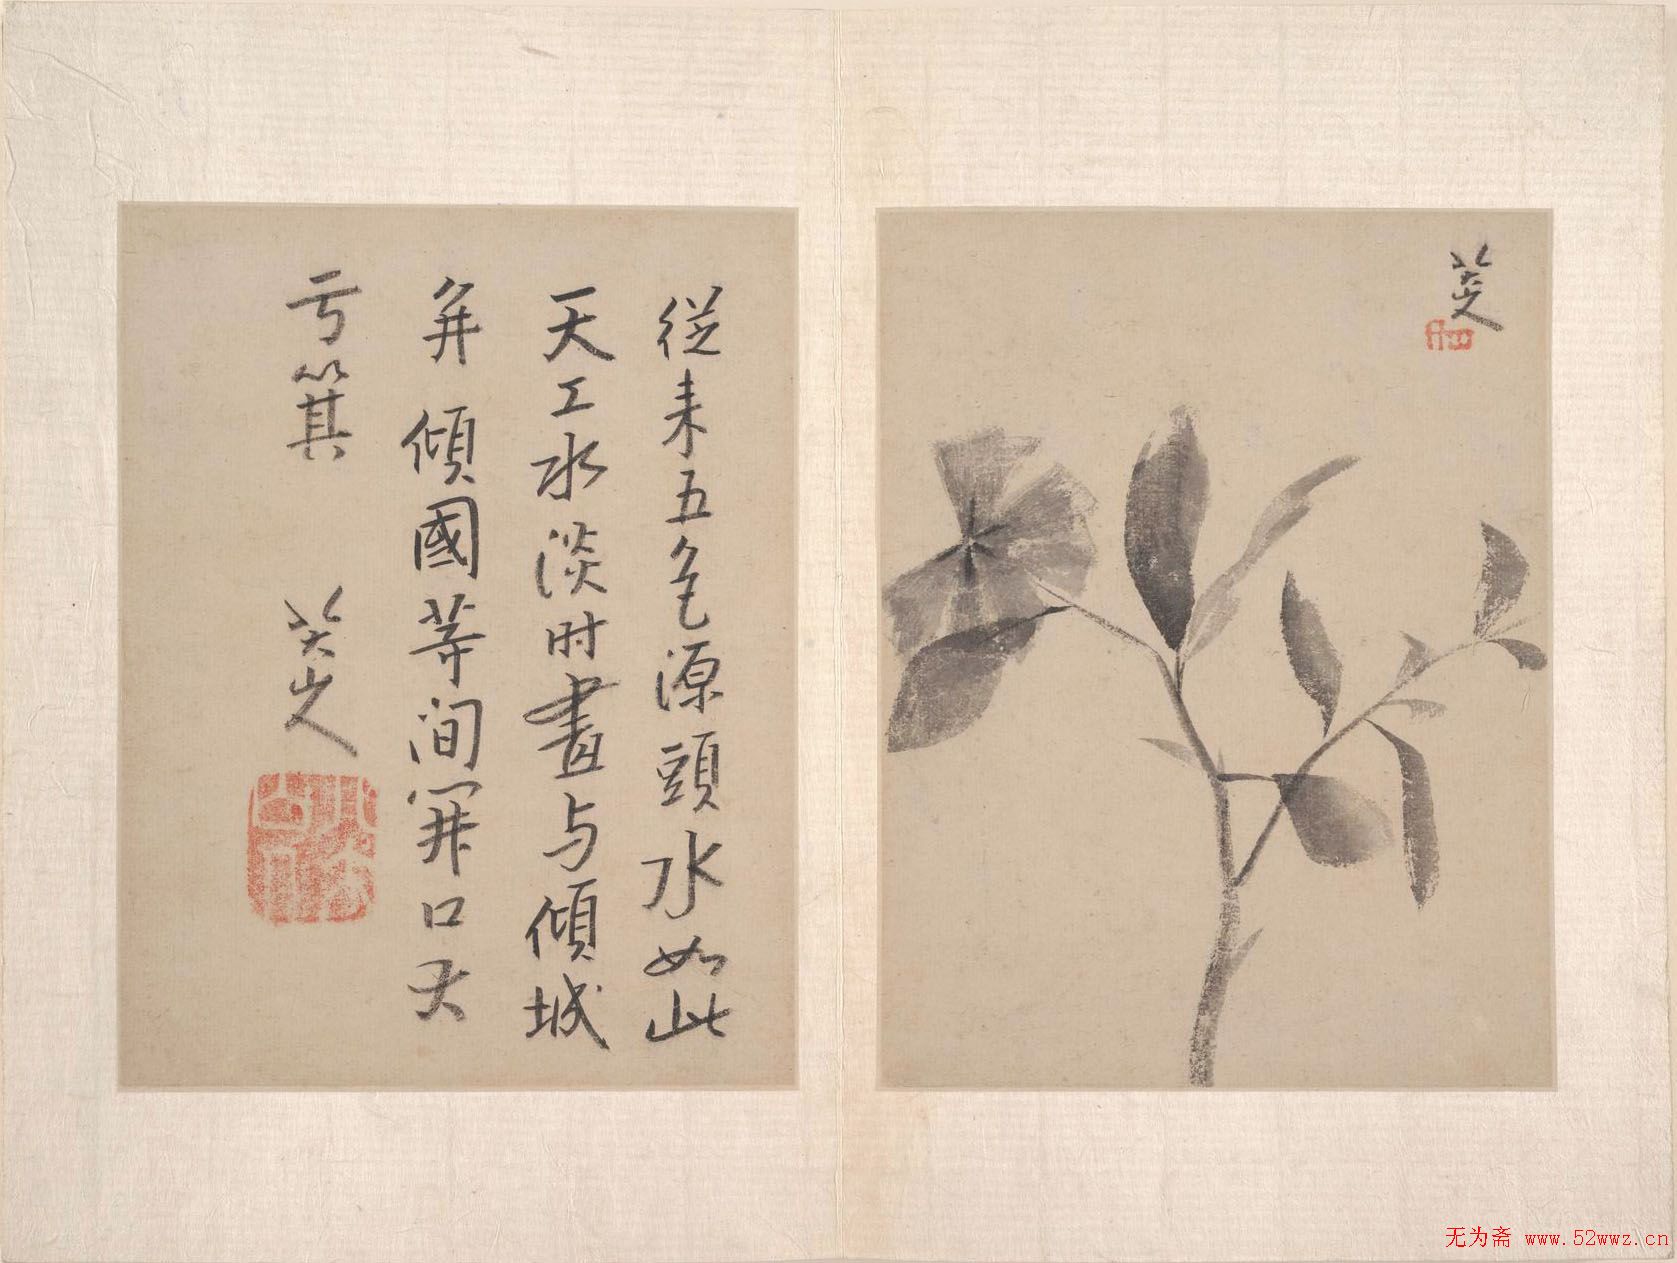 八大山人
從来五色源頭水如此
天工水淡时畫与傾城
并傾國等间開口大
亏箕
八大山人
八大山人
无为斋 www.52wwz.cn